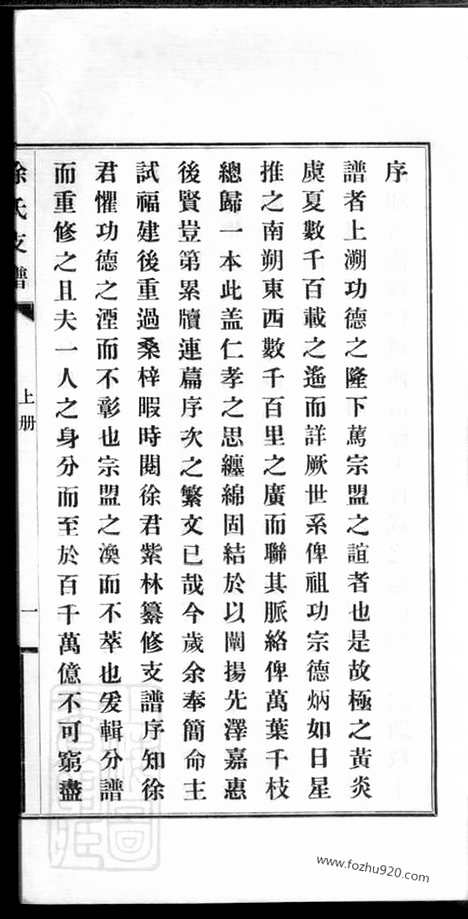 序
譜者上溯功德之隆下萬宗盟之誼者也是故極之黃炎
虞夏數千百載之遙而詳厥世系俾祖功宗德炳如日星
推之南朔東西數千百里之廣而聯其脈絡俾萬葉千枝
總歸一本此盖仁孝之思纏綿固結於以闡揚先澤嘉惠
後賢豈第累牘連篇序次之繁文已哉今歲余奉簡命主
試福建後重過桑梓暇時閱徐君紫林纂修支譜序知徐
君懼功德之湮而不彰也宗盟之渙而不萃也爰輯分譜
而重修之且夫一人之身分而至於百千萬億不可窮盡
徐氏支譜
上册
一
www.fozhu920.com